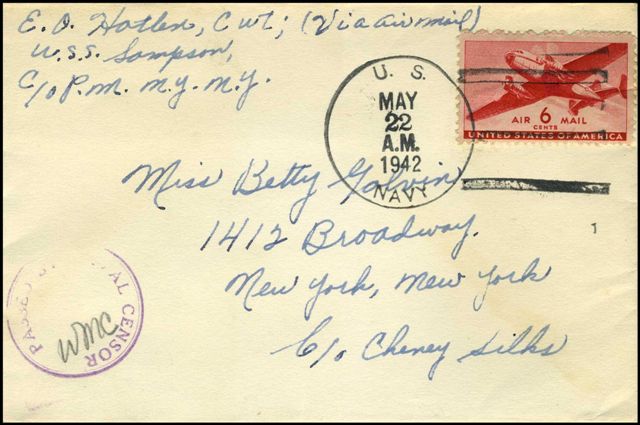 E. O. Hatlen, Cwt; (Via air mail)
U.S.S. Sampson,
C/o P.M. N.Y. N.Y.
U. S.
MAY
22
A.M.
1942
NAVY
AIR 6 MAIL
CENTS
UNITED STATES OF AMERICA
Miss Betty Galvin
1412 Broadway.
New York, New York
C/o Cheney Silks
1
PASSED BY
NAVAL CENSOR
WMC